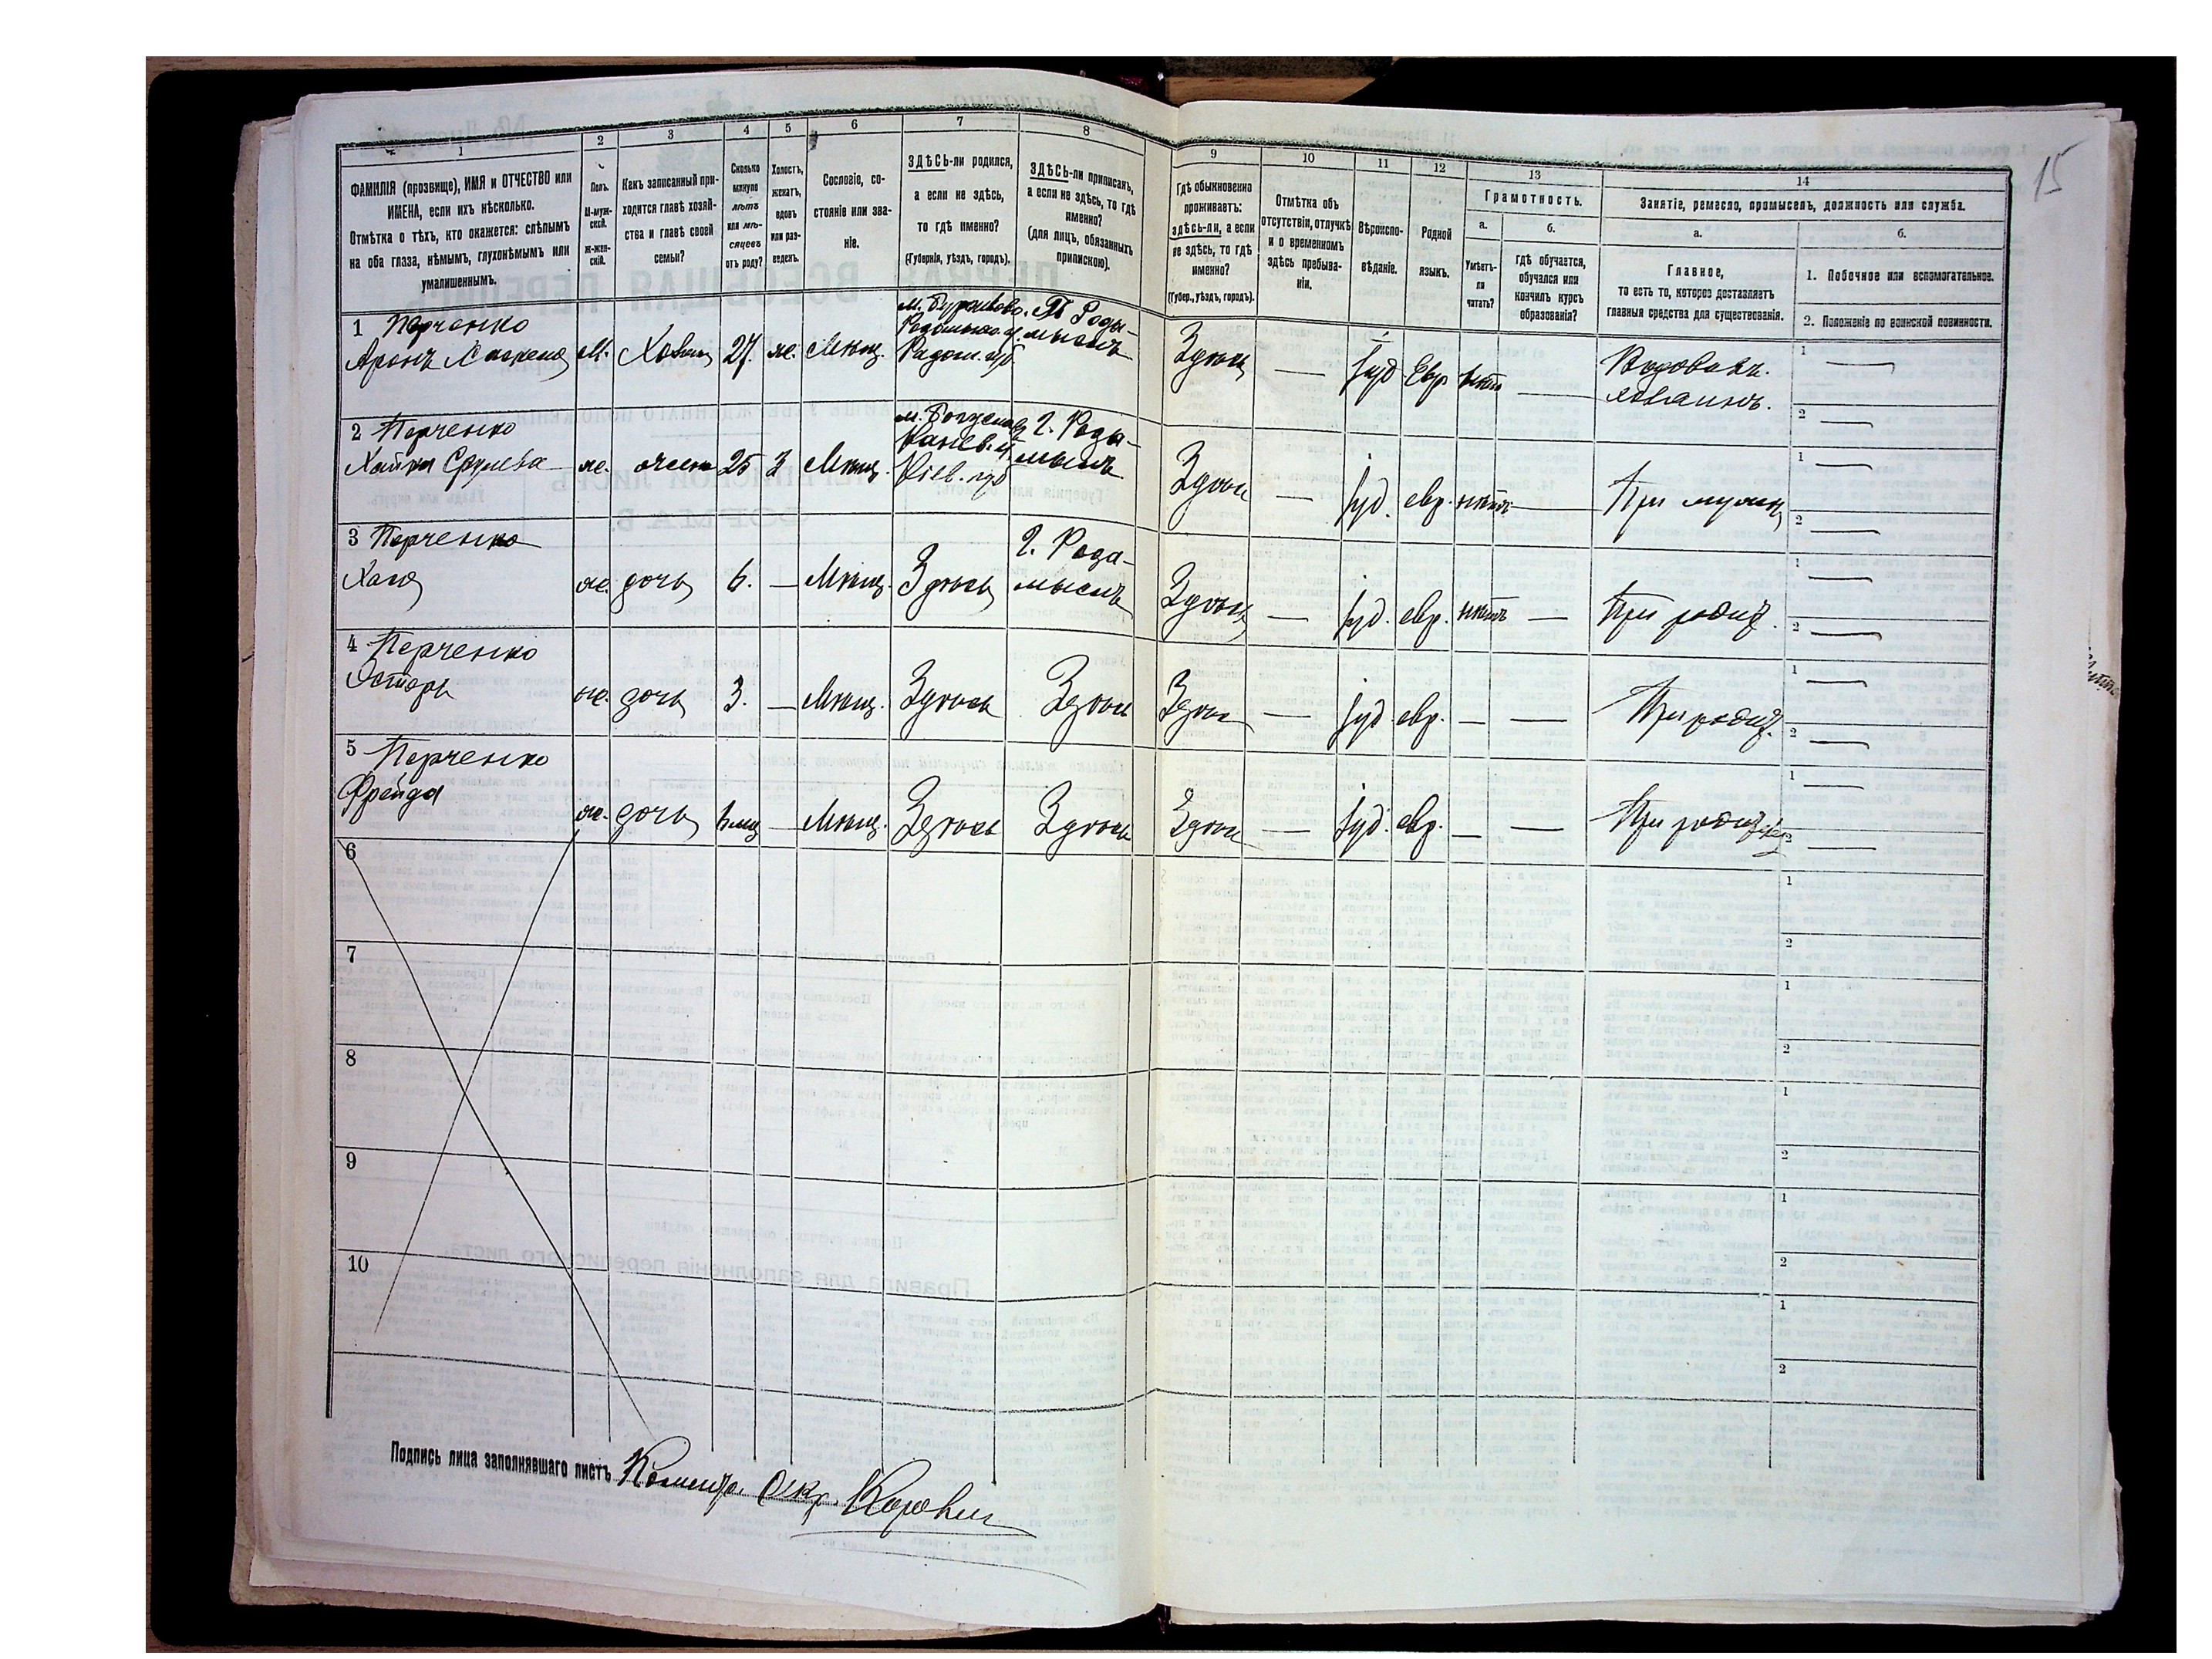 15
1
2
3
4
5
6
7
8
9
10
11
12
13
14
ФАМИЛІЯ (прозвище), ИМЯ и ОТЧЕСТВО или
ИМЕНА, если ихъ нѣсколько.
Отмѣтка о тѣхъ, кто окажется: слѣпымъ
на оба глаза, нѣмымъ, глухонѣмымъ или
умалишеннымъ.
Полъ.
М-муж-
ской.
ж-жен-
скій.
Какъ записанный при-
ходится главѣ хозяй-
ства и главѣ своей
семьи?
Сколько
минуло
лѣтъ
или мѣ-
сяцевъ
отъ роду?
Холостъ,
женатъ,
вдовъ
или раз-
веденъ.
Сословіе, со-
стояніе или зва-
ніе.
ЗДѢСЬ-ли родился,
а если не здѣсь,
то гдѣ именно?
(Губернія, уѣздъ, городъ).
ЗДѢСЬ-ли приписанъ,
а если не здѣсь, то гдѣ
именно?
(для лицъ, обязанныхъ
припискою).
Гдѣ обыкновенно
проживаетъ:
здѣсь-ли, а если
не здѣсь, то гдѣ
именно?
(Губер., уѣздъ, городъ).
Отмѣтка объ
отсутствіи, отлучкѣ
и о временномъ
здѣсь пребыва-
ніи.
Вѣроиспо-
вѣданіе.
Родной
языкъ.
Грамотность.
а.
Умѣетъ-
ли
читать?
б.
гдѣ обучается,
обучался или
кончилъ курсъ
образованія?
Занятіе, ремесло, промыселъ, должность или служба.
а.
Главное,
то есть то, которое доставляетъ
главныя средства для существованія.
б.
1. Побочное или вспомогательное.
2. Положеніе по воинской повинности.
1 Перченко
Аронъ м. 27. ж. Мѣщ. Здѣсь — Іуд. Евр. нѣтъ —
2 Перченко
ж. 25 З Мѣщ. Кіев. губ Здѣсь — Іуд. евр. нѣтъ — При мужѣ
3 Перченко
Хая ж. дочь 6. — Мѣщ. Здѣсь г. Радо-
мыслъ Здѣсь — Іуд. евр. нѣтъ — При родит.
4 Перченко
Эстеръ ж. дочь 3. — Мѣщ. Здѣсь Здѣсь Здѣсь — Іуд. евр. — — При родит.
5 Перченко
Фрейда ж. дочь — Мѣщ. Здѣсь Здѣсь Здѣсь — Іуд. евр. — — При родит.
6
7
8
9
10
Подпись лица заполнявшаго листъ